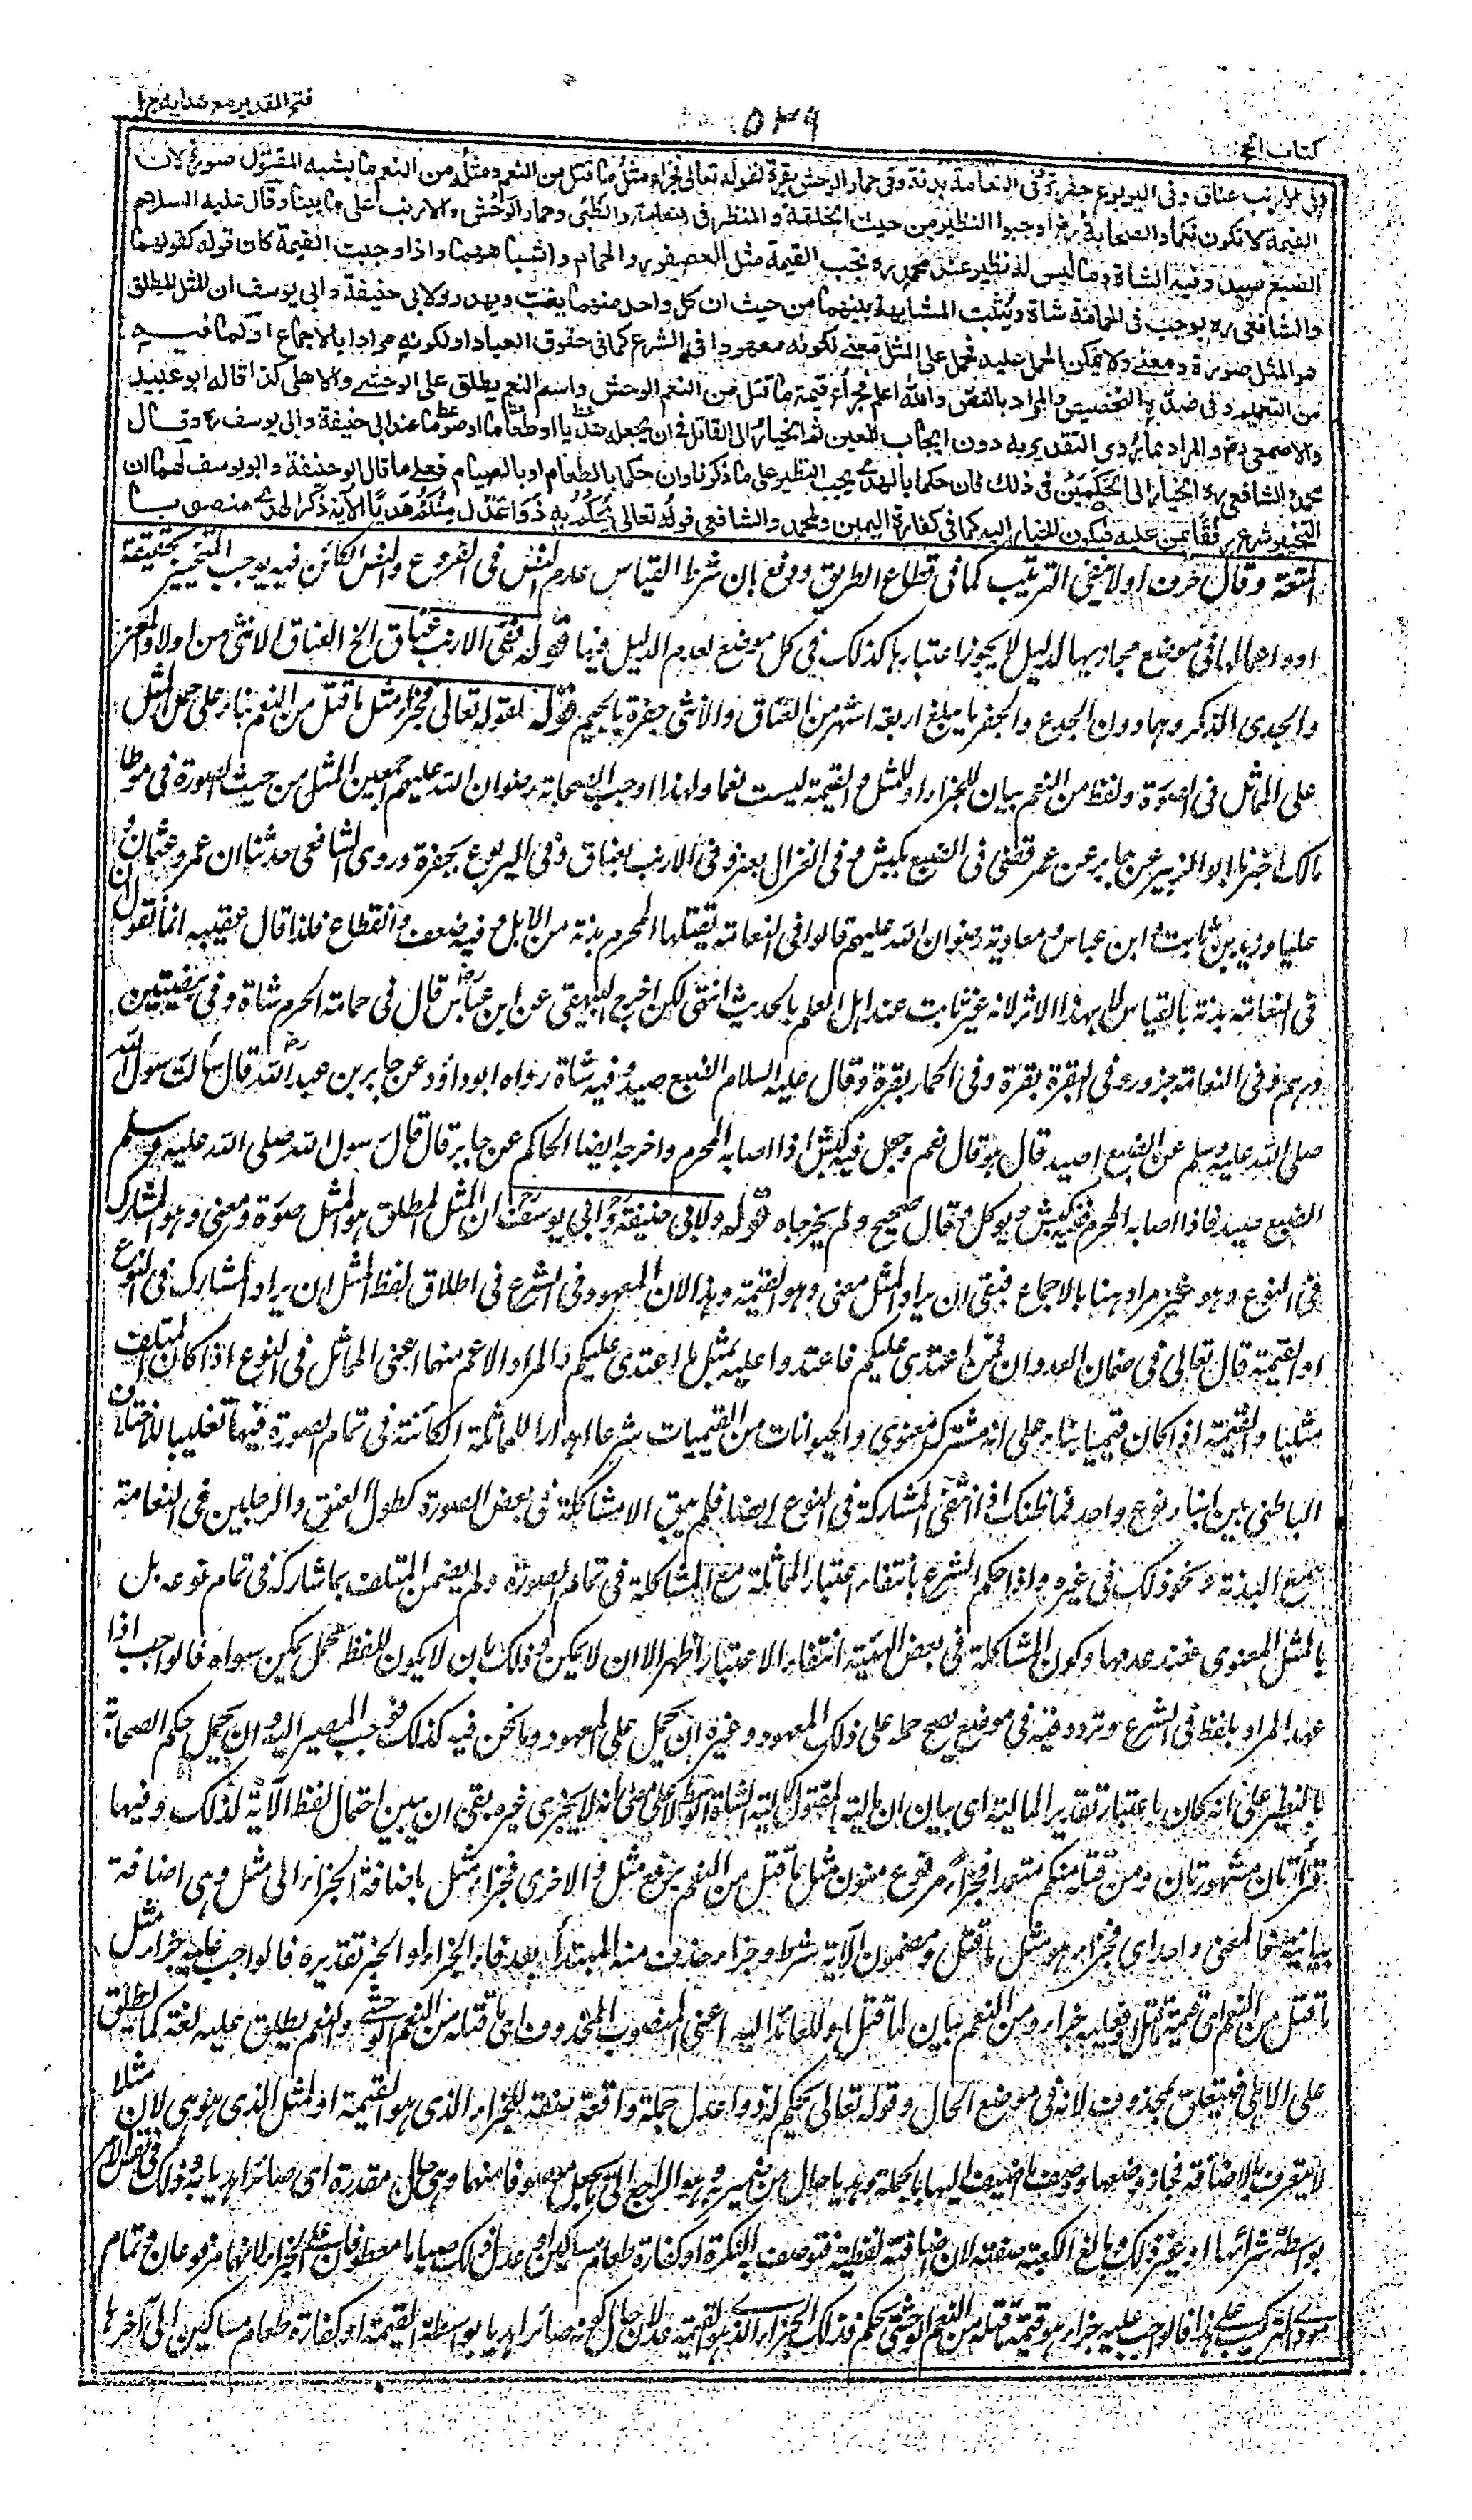 فتح القدير مع هدايه ج ا
٥٣٩
كتاب الحج
وفى الارنب عناق وفى اليربوع جفرة وفى النعامة بدنة وفى حمار الوحش بقرة لقوله تعالى فجزاء مثل ما قتل من النعم ومثله من النعم ما يشبه المقتول صورة لان
القيمة لا تكون نعما والصحابة رض اوجبوا النظير من حيث الخلقة والمنظر فى النعامة والظبى وحمار الوحش والارنب على ما بينا وقال عليه السلام
الضبع صيد وفيه الشاة وما ليس له نظير عند محمد ره تجب القيمة مثل العصفور والحمام واشباههما واذا وجبت القيمة كان قوله كقولهما
والشافعى ره يوجب فى الحمامة شاة ويثبت المشابهة بينهما من حيث ان كل واحد منهما يعب ويهدر ولابى حنيفة وابى يوسف ان المثل المطلق
هو المثل صورة ومعنى ولا يمكن الحمل عليه فحمل على المثل معنى لكونه معهودا فى الشرع كما فى حقوق العباد او لكونه مرادا بالاجماع او لما فيه
من التعميم وفى ضده التخصيص والمراد بالنص والله اعلم فجزاء قيمة ما قتل من النعم الوحش واسم النعم يطلق على الوحشى والاهلى كذا قاله ابو عبيد
والاصمعى رح والمراد بما روى التقدير به دون ايجاب المعين ثم الخيار الى القاتل فى ان يجعله هديا او طعاما او صوما عند ابى حنيفة وابى يوسف رح وقال
محمد والشافعى ره الخيار الى الحكمين فى ذلك فان حكما بالهدى يجب النظير على ما ذكرنا وان حكما بالطعام او بالصيام فعلى ما قال ابو حنيفة وابو يوسف لهما ان
التخيير شرع رفقا بمن عليه فيكون الخيار اليه كما فى كفارة اليمين ولمحمد والشافعى قوله تعالى يحكم به ذوا عدل منكم هديا الآية ذكر الهدى منصوبا
المتعة وقال حرف او لا ينفى الترتيب كما فى قطاع الطريق ودفع بان شرط القياس عدم النص فى الفروع والنص الكائن فيه يوجب التخيير حقيقة
او واهمالها فى موضع مجازيها لدليل لا يجوز اعتبارها كذلك فى كل موضع لعدم الدليل فيها قوله ففى الارنب عناق الخ العناق الانثى من اولاد المعز
والجدى الذكر وهما دون الجذع والجفر ما يبلغ اربعة اشهر من العناق والانثى جفرة بالجيم قوله لقوله تعالى فجزاء مثل ما قتل من النعم بناء على حمل المثل
على المماثل فى الصورة ولفظ من النعم بيان للجزاء او للمثل والقيمة ليست نعما ولهذا اوجب الصحابة رضوان الله عليهم اجمعين المثل من حيث الصورة فى موطا
مالك اخبرنا ابو الزبير عن جابر عن عمر قضى فى الضبع بكبش وفى الغزال بعنز وفى الارنب بعناق وفى اليربوع بجفرة وروى الشافعى حدثنا ان عمر وعثمان
عليا وزيد بن ثابت وابن عباس ومعاوية رضوان الله عليهم قالوا فى النعامة يقتلها المحرم بدنة من الابل وفيه ضعف وانقطاع فلذا قال عقيبه انما نقول ان
فى النعامة بدنة بالقياس لا بهذا الاثر لانه غير ثابت عند اهل العلم بالحديث انتهى لكن اخرج البيهقى عن ابن عباس رض قال فى حمامة الحرم شاة وفى بيضتين
درهم وفى النعامة جزور وفى البقرة بقرة وفى الحمار بقرة وقال عليه السلام الضبع صيد وفيه شاة رواه ابو داؤد عن جابر بن عبد الله رض قال سألت رسول الله
صلى الله عليه وسلم عن الضبع اصيد قال هو قال نعم ويجعل فيه كبش اذا اصابه المحرم واخرجه ايضا الحاكم عن جابر قال قال رسول الله صلى الله عليه وسلم
الضبع صيد فاذا اصابه المحرم ففيه كبش ويوكل وقال صحيح ولم يخرجاه قوله ولابى حنيفة وابى يوسف ان المثل المطلق هو المثل صورة ومعنى وهو المشارك
فى النوع وهو غير مراد هنا بالاجماع فبقى ان يراد المثل معنى وهو القيمة وهذا لان المعهود فى الشرع فى اطلاق لفظ المثل ان يراد المشارك فى النوع
او القيمة قال تعالى فى ضمان العدوان فمن اعتدى عليكم فاعتدوا عليه بمثل ما اعتدى عليكم والمراد الاعم منهما اعنى المماثل فى النوع اذا كان المتلف
مثليا والقيمة اذا كان قيميا بناء على انه مشترك معنوى والحيوانات من القيميات شرعا اهدارا للمماثلة الكائنة فى تمام الصورة فيها تغليبا للاختلاف
الباطنى بين ابناء نوع واحد فما ظنك اذا انتفى المشاركة فى النوع ايضا فلم يبق الا مشاكلة فى بعض الصورة كطول العنق والرجلين فى النعامة
مع البدنة ونحو ذلك فى غيره واذا حكم الشرع بانتفاء اعتبار المماثلة مع المشاكلة فى تمام الصورة ولم يضمن المتلف بما شاركه فى تمام نوعه بل
بالمثل المعنوى فعند عدمها وكون المشاكلة فى بعض الهيئة انتفاء الاعتبار اظهر الا ان لا يمكن وذلك بان لا يكون للفظ محمل يمكن سواه فالواجب اذا
عهد المراد بلفظ فى الشرع وتردد فيه فى موضع يصح حمله على ذلك المعهود وغيره ان يحمل على المعهود وما نحن فيه كذلك فوجب المصير اليه وان يحمل حكم الصحابة
بالنظير على انه كان باعتبار تقدير المالية اى بيان ان مالية المقتول كمالية الشاة الوسط لا على معنى انه لا يجزى غيره بقى ان يبين احتمال لفظ الآية لذلك وفيها
قراءتان مشهورتان ومن قتله منكم متعمدا فجزاء مرفوع منون مثل ما قتل من النعم برفع مثل والاخرى فجزاء مثل باضافة الجزاء الى مثل وهى اضافة
بيانية فالمعنى واحد اى فجزاء هو مثل ما قتل ومضمون الآية شرط وجزاء حذف منه المبتدأ بعد فاء الجزاء او الخبر تقديره فالواجب عليه جزاء مثل
ما قتل من النعم اى قيمة ما قتل او فعليه جزاء ومن النعم بيان لما قتل او للعائد اليه اعنى المنصوب المحذوف اى ما قتله من النعم الوحشى والنعم يطلق عليه لغة كما يطلق
على الاهلى فيتعلق بمحذوف لانه فى موضع الحال وقوله تعالى يحكم به ذوا عدل جملة واقعة صفة للجزاء الذى هو القيمة او المثل الذى هو هى لان مثلا
لا يتعرف بالاضافة فجاز وصفها ووصف ما اضيف اليها بالجملة وهديا حال من ضمير به وهو الراجع الى يجعل موصوفا منهما وهى حال مقدرة اى صائرا هديا به وذلك فى نفس الامر
بواسطة شرائها او غير ذلك وبالغ الكعبة صفته لان اضافته لفظية فتوصف به النكرة او كفارة طعام مساكين او عدل ذلك صياما معطوفان على الجزاء لانهما مرفوعان وتمام
مودى التركيب على هذا فالواجب عليه جزاء هو قيمة ما قتله من النعم الوحشى يحكم بذلك الجزاء الذى هو القيمة عدلان حال كونه صائرا هديا بواسطة القيمة او كفارة طعام مساكين الى آخرها